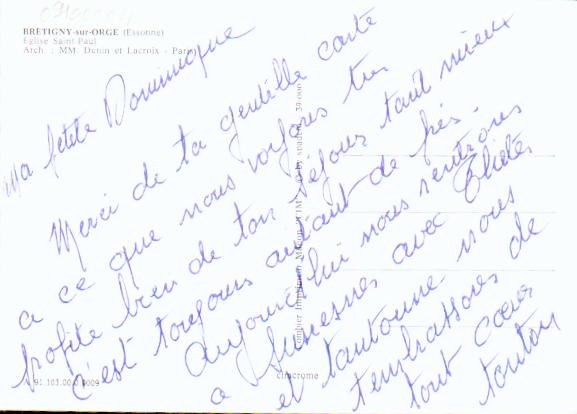 BRÉTIGNY-sur-ORGE (Essonne)
Eglise Saint Paul
Arch. : MM. Dunin et Lacroix - Paris
Ma petite Dominique
Merci de ta gentille carte
a ce que nous voyons tu
profite bien de ton séjour tant mieux
c'est toujours autant de pris.
aujourd'hui nous rentrons
a Suresnes avec
et tantonne nous
t'embrassons de
tout cœur
tonton
Combier Imprimeur Mâcon
cimcrome